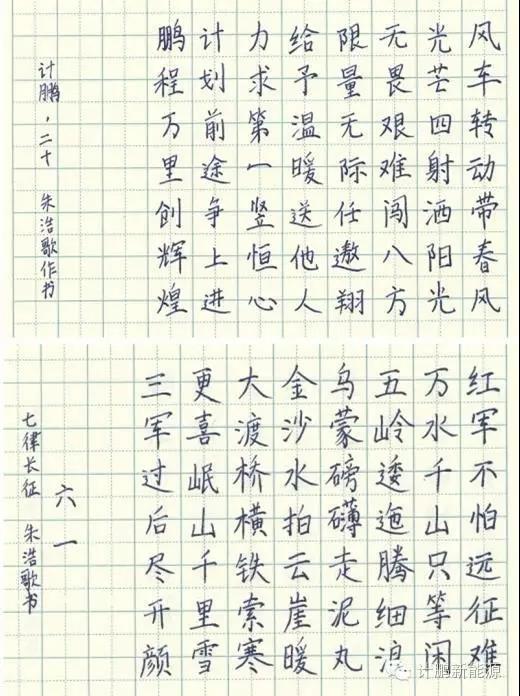 风车转动带春风
光芒四射洒阳光
无畏艰难闯八方
限量无际任遨翔
给予温暖送他人
力求第一竖恒心
计划前途争上进
鹏程万里创辉煌
计鹏·二十 朱浩歌作书
红军不怕远征难
万水千山只等闲
五岭逶迤腾细浪
乌蒙磅礴走泥丸
金沙水拍云崖暖
大渡桥横铁索寒
更喜岷山千里雪
三军过后尽开颜
六一
七律长征 朱浩歌书
计鹏新能源